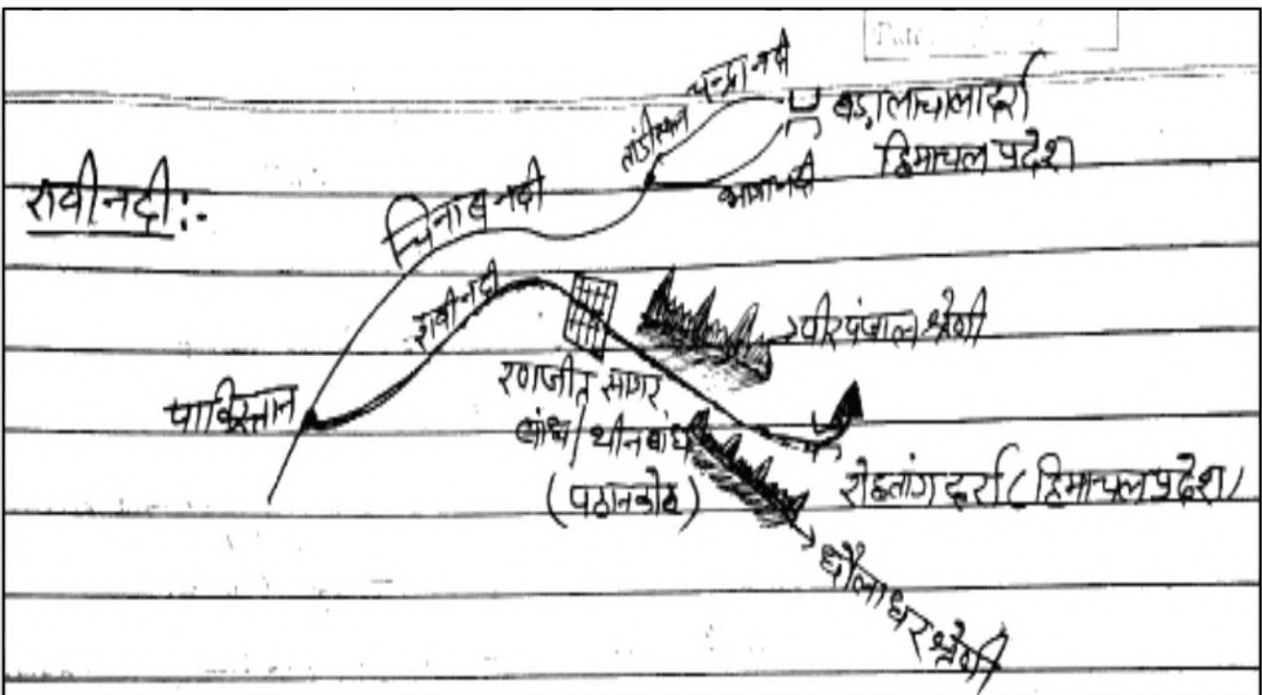 Date
चन्द्रा नदी
बड़ालाचाला दर्रा
हिमाचल प्रदेश
तांडी स्थान
भागा नदी
रावी नदी :-
चिनाब नदी
रावी नदी
पीर पंजाल श्रेणी
रणजीत सागर
बांध / थीन बांध
(पठानकोट)
पाकिस्तान
रोहतांग दर्रा (हिमाचल प्रदेश)
धौलाधर श्रेणी